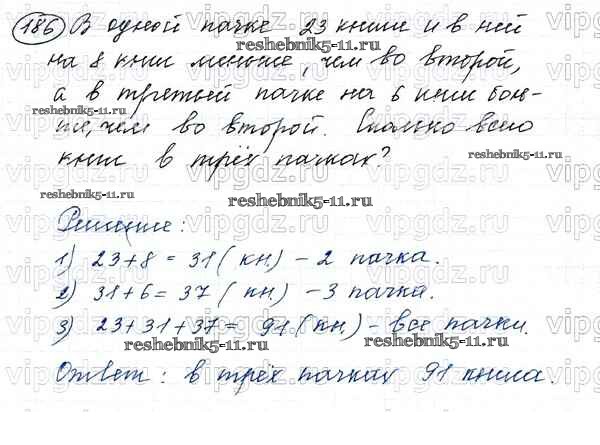 186 В одной пачке 23 книги и в ней
на 8 книг меньше, чем во второй,
а в третьей пачке на 6 книг боль-
ше, чем во второй. Сколько всего
книг в трёх пачках?
Решение:
1) 23+8 = 31 ( кн.) – 2 пачка.
2) 31+6 = 37 ( кн.) – 3 пачка.
3) 23+31+37 = 91 ( кн.) – все пачки.
Ответ: в трёх пачках 91 книга.
reshebnik5-11.ru
reshebnik5-11.ru
reshebnik5-11.ru
reshebnik5-11.ru
reshebnik5-11.ru
reshebnik5-11.ru
reshebnik5-11.ru
vipgdz.ru